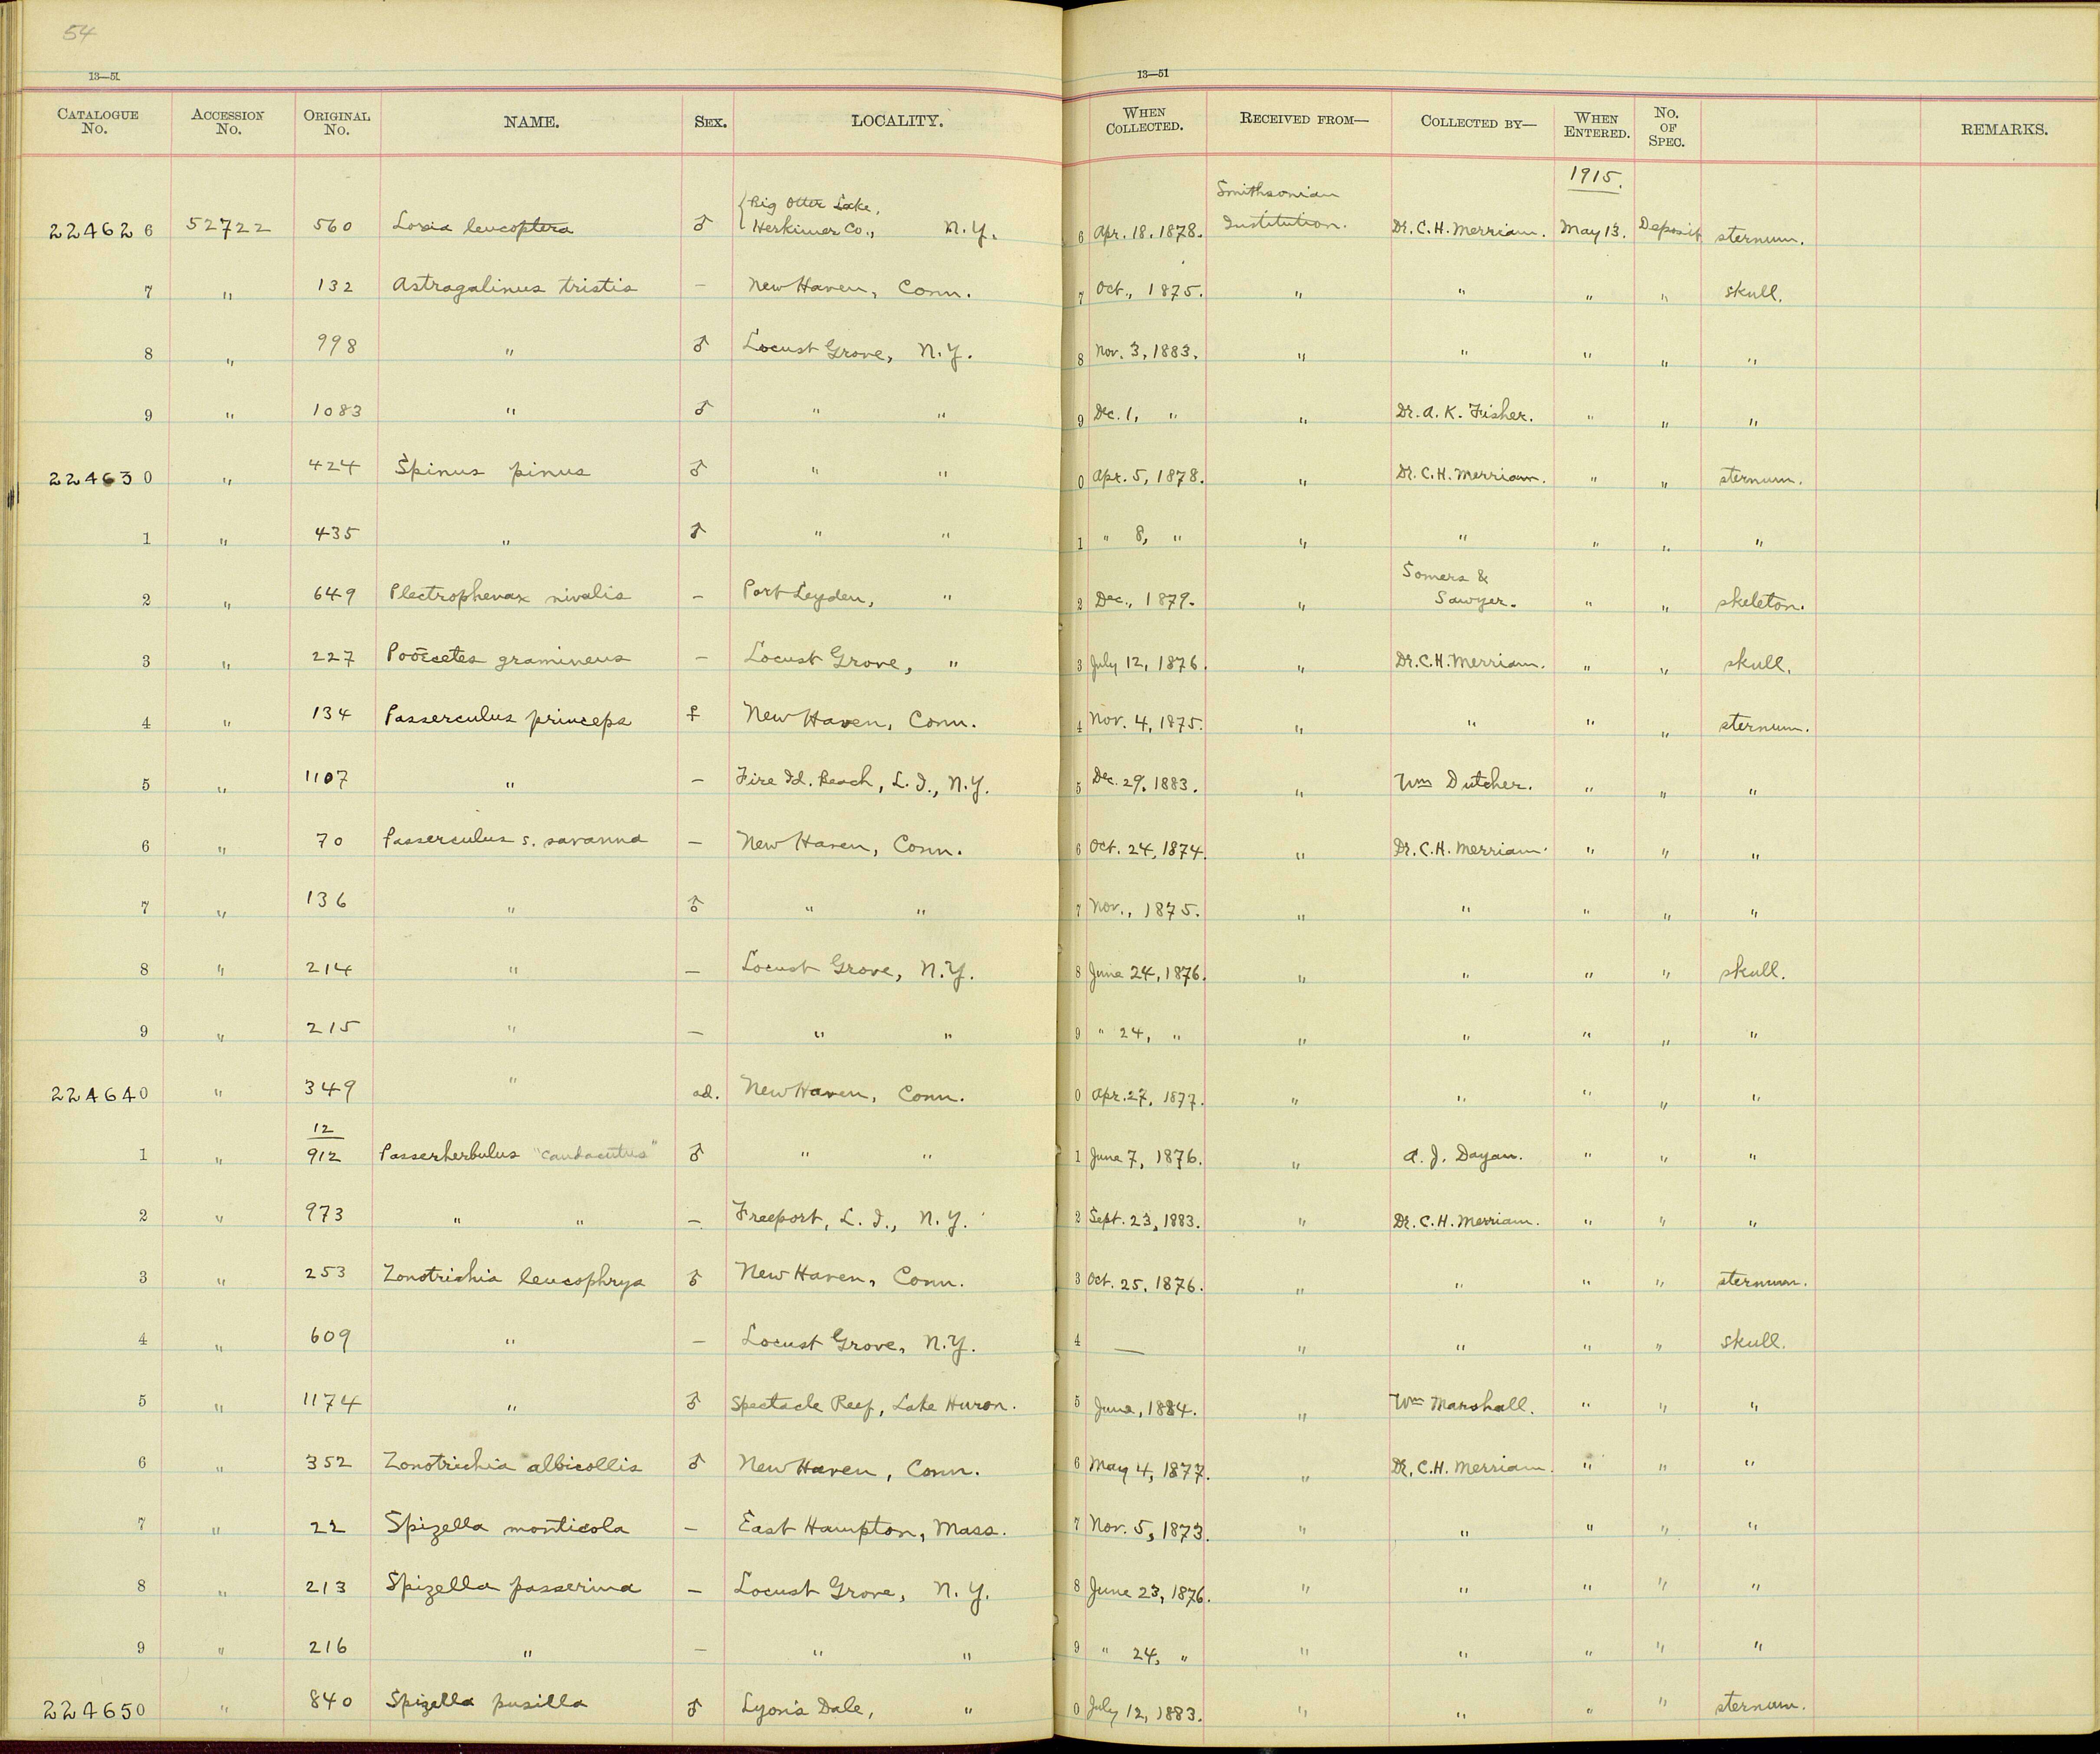 54
13—51 13—51
CATALOGUE No. ACCESSION No. ORIGINAL No. NAME. SEX. LOCALITY. WHEN COLLECTED. RECEIVED FROM— COLLECTED BY— WHEN ENTERED. No. OF SPEC. REMARKS.
1915.
224626 52722 560 Loxia leucoptera ♂ {Big Otter Lake, Herkimer Co., N.Y. 6 Apr. 18, 1878. Smithsonian Institution. Dr. C. H. Merriam. May 13. Deposit sternum.
7 " 132 Astragalinus tristis — New Haven, Conn. 7 Oct., 1875. " " " " skull.
8 " 998 " ♂ Locust Grove, N.Y. 8 Nov. 3, 1883. " " " " "
9 " 1083 " ♂ " " 9 Dec. 1, " " Dr. A. K. Fisher. " " "
224630 " 424 Spinus pinus ♂ " " 0 Apr. 5, 1878. " Dr. C. H. Merriam. " " sternum.
1 " 435 " ♂ " " 1 " 8, " " " " " "
2 " 649 Plectrophenax nivalis — Port Leyden, " 2 Dec., 1879. " Somers & Sawyer. " " skeleton.
3 " 227 Poöecetes gramineus — Locust Grove, " 3 July 12, 1876. " Dr. C. H. Merriam. " " skull.
4 " 134 Passerculus princeps ♀ New Haven, Conn. 4 Nov. 4, 1875. " " " " sternum.
5 " 1107 " — Fire Id. Beach, L. I., N.Y. 5 Dec. 29, 1883. " Wm Dutcher. " " "
6 " 70 Passerculus s. savanna — New Haven, Conn. 6 Oct. 24, 1874. " Dr. C. H. Merriam. " " "
7 " 136 " ♂ " " 7 Nov., 1875. " " " " "
8 " 214 " — Locust Grove, N.Y. 8 June 24, 1876. " " " " skull.
9 " 215 " — " " 9 " 24, " " " " " "
224640 " 349 " ad. New Haven, Conn. 0 Apr. 27, 1877. " " " " "
12
1 " 912 Passerherbulus "caudacutus" ♂ " " 1 June 7, 1876. " A. J. Dayan. " " "
2 " 973 " " — Freeport, L. I., N.Y. 2 Sept. 23, 1883. " Dr. C. H. Merriam. " " "
3 " 253 Zonotrichia leucophrys ♂ New Haven, Conn. 3 Oct. 25, 1876. " " " " sternum.
4 " 609 " — Locust Grove, N.Y. 4 — " " " " skull.
5 " 1174 " ♂ Spectacle Reef, Lake Huron. 5 June, 1884. " Wm Marshall. " " "
6 " 352 Zonotrichia albicollis ♂ New Haven, Conn. 6 May 4, 1877. " Dr. C. H. Merriam. " " "
7 " 22 Spizella monticola — East Hampton, Mass. 7 Nov. 5, 1873. " " " " "
8 " 213 Spizella passerina — Locust Grove, N.Y. 8 June 23, 1876. " " " " "
9 " 216 " — " " 9 " 24, " " " " " "
224650 " 840 Spizella pusilla ♂ Lyon's Dale, " 0 July 12, 1883. " " " " sternum.